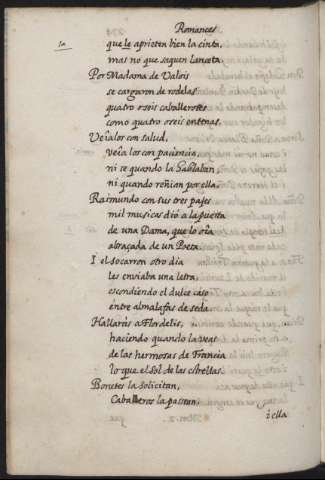 Romances
que le aprieten bien la cinta,
mas no que saquen lanceta
Por Madama de Valois
se cargaron de rodelas
quatro o seis caballerotes
como quatro o seis entenas.
Veíalos con salud,
veía los con paciencia,
ni se quando la hablaban,
ni quando reñian por ella.
Raimundo con sus tres pajes
mil musicas dió a la puerta
de una Dama, que lo oía
abraçada de un Poeta.
I el socarron otro dia
les enviaba una letra,
escondiendo el dulce caso
entre almalafas de seda.
Hallarás a Flordelis,
haciendo quando la veas
de las hermosas de Francia
lo que el Sol de las estrellas.
Bonetes la solicitan,
Caballeros la pasean,
i ella